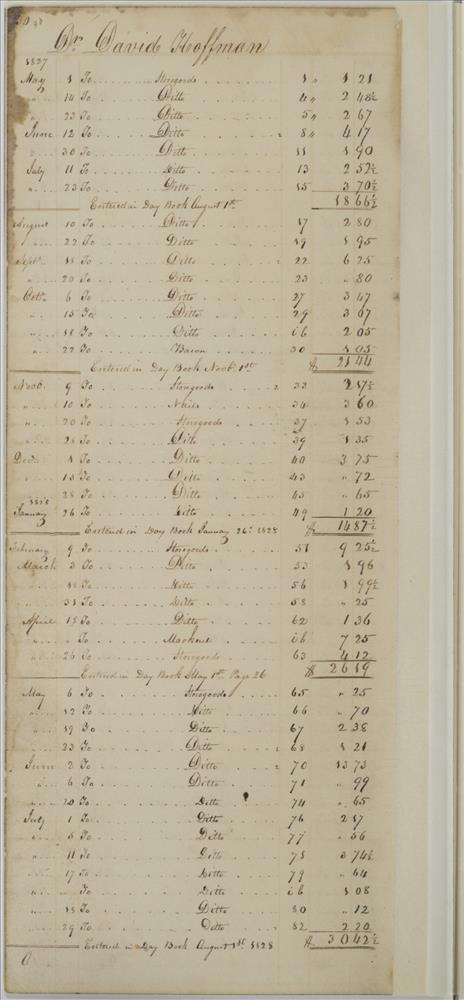 30
Dr. David Hoffman
1827
May 1 To Storegoods 1 " 1 21
" 14 To Ditto 4 " 2 48½
" 23 To Ditto 5 " 2 67
June 12 To Ditto 8 " 4 17
" 30 To Ditto 11 1 90
July 11 To Ditto 13 2 52½
" 23 To Ditto 15 3 70½
Entered in Day Book August 1st. 18 66½
August 10 To Ditto 17 2 80
" 22 To Ditto 19 1 95
Septr. 15 To Ditto 22 6 25
" 20 To Ditto 23 " 80
Octr. 6 To Ditto 27 3 47
" 15 To Ditto 29 3 07
" 18 To Ditto ib 2 05
" 22 To Bacon 30 1 05
Entered in Day Book Novbr. 1st $ 21 44
Novb. 9 To Storegoods 33 2 17½
" 10 To Nails 34 3 60
" 20 To Storegoods 37 1 53
" 28 To Ditto 39 1 35
Decr. 1 To Ditto 40 3 75
" 13 To Ditto 43 " 72
" 28 To Ditto 45 " 65
1828
January 26 To Ditto 49 1 20
Entered in Day Book January 26th 1828 $ 14 87½
February 9 To Storegoods 51 9 25½
March 3 To Ditto 53 1 96
" 18 To Ditto 56 1 99½
" 31 To Ditto 58 " 25
April 15 To Ditto 62 1 36
" " To Mackerel ib 7 25
" 26 To Storegoods 63 4 12
Entered in Day Book May 1st. Page 26 $ 26 19
May 6 To Storegoods 65 " 25
" 12 To Ditto 66 " 70
" 19 To Ditto 67 2 38
" 23 To Ditto 68 1 21
June 2 To Ditto 70 13 73
" 6 To Ditto 71 " 99
" 20 To Ditto 74 " 65
July 1 To Ditto 76 2 17
" 5 To Ditto 77 " 56
" 11 To Ditto 78 3 74½
" 17 To Ditto 79 " 64
" " To Ditto ib 1 08
" 18 To Ditto 80 " 12
" 29 To Ditto 82 2 20
Entered in Day Book August 1st. 1828 $ 30 42½